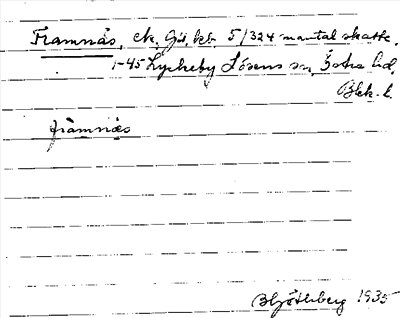 Framnäs, ek. Gd, kb. 5/324 mantal skatte.
1-45 Lyckeby Lösens sn, Östra hd,
Blek. l.
främnäs
B Hjöthberg 1935